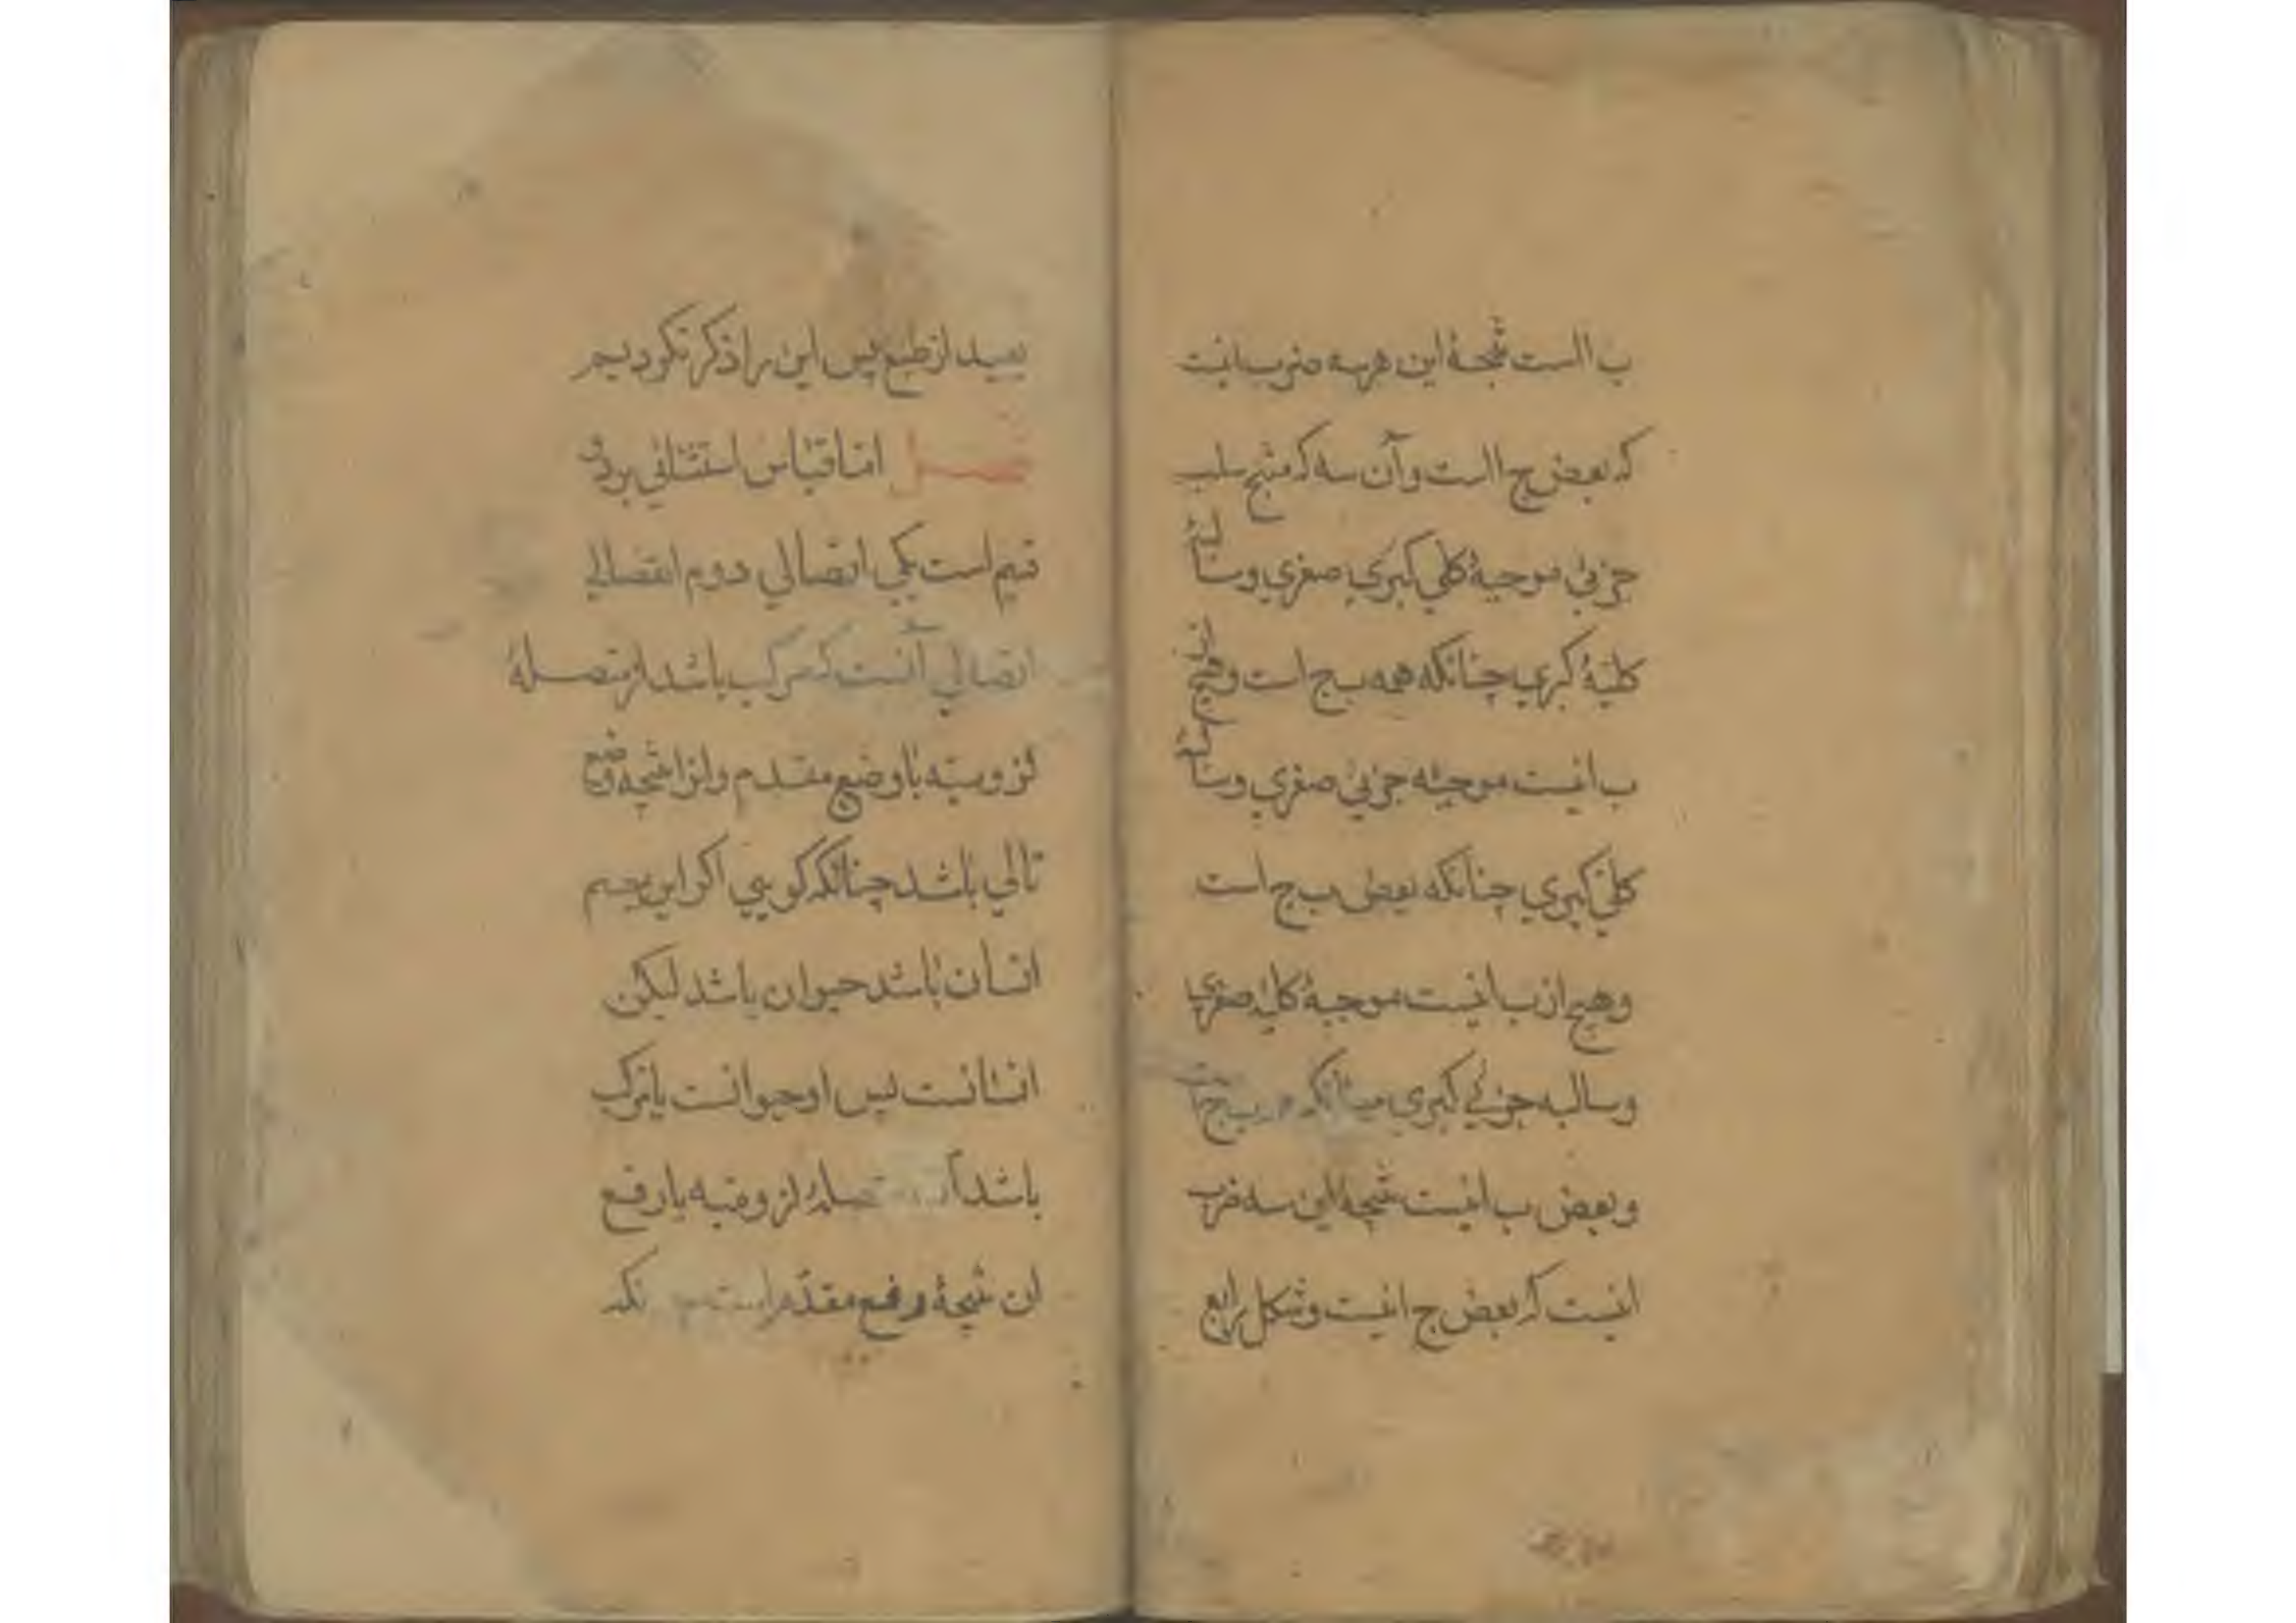 ب ااست نتیجهٔ این هرسه ضرب اینت
که بعض ج ااست و آن سه که منتج سلب
جزئی موجبهٔ کلی کبری صغری و سالبهٔ
کلیهٔ کبری چنانکه همه ب ج است و هیچ از
ب انیست موجبه جزئی صغری و سالبهٔ
کلی کبری چنانکه بعض ب ج است
و هیچ از ب انیست موجبهٔ کلیه صغری
و سالبه جزئی کبری ب ج
و بعض ب انیست نتیجهٔ این سه ضرب
اینست که بعض ج انیست و شکل رابع
بعید از طبع پس این را ذکر نکردیم
فصل اما قیاس استثنائی بر دو
قسم است یکی اتصالی دوم انفصالی
اتصالی آنست که مرکب باشد از متصلهٔ
لزومیه با وضع مقدم و از نتیجه وضع
تالی باشد چنانکه کویی اکر این جسم
انسان باشد حیوان باشد لیکن
انسانست پس او حیوانست یا مرکب
باشد لزومیه با رفع
ان نتیجهٔ رفع مقدم است